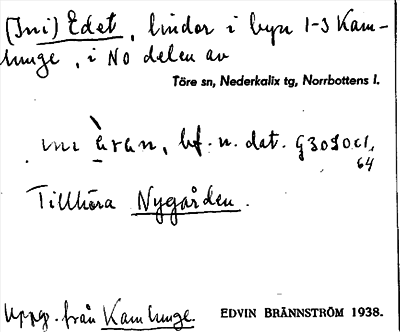 (Ini) Edet, lindor i byn 1-3 Kam-
lunge, i NO delen av
Töre sn, Nederkalix tg, Norrbottens l.
ini ... , bf. n. dat.
64
Tillhöra Nygården.
Uppg. från Kamlunge. EDVIN BRÄNNSTRÖM 1938.